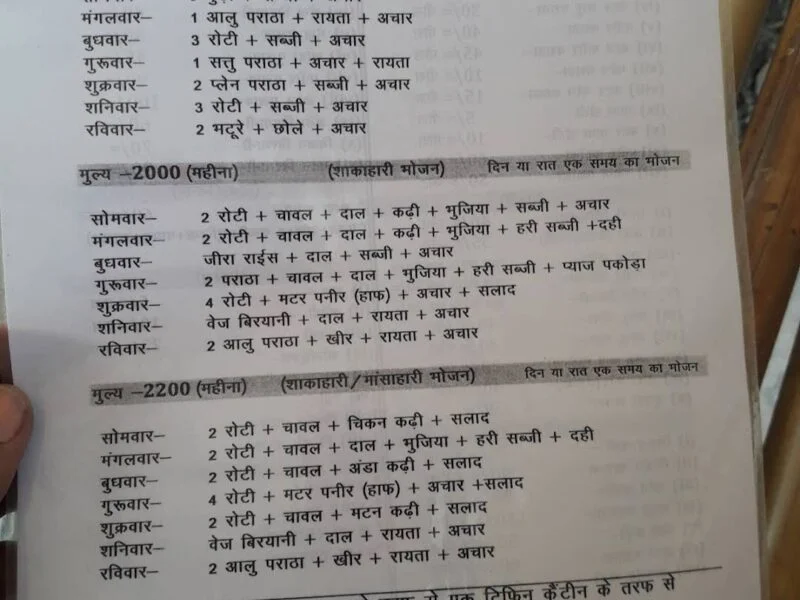 मंगलवार– 1 आलु पराठा + रायता + अचार
बुधवार– 3 रोटी + सब्जी + अचार
गुरूवार– 1 सत्तु पराठा + अचार + रायता
शुक्रवार– 2 प्लेन पराठा + सब्जी + अचार
शनिवार– 3 रोटी + सब्जी + अचार
रविवार– 2 भटूरे + छोले + अचार
मुल्य –2000 (महीना) (शाकाहारी भोजन) दिन या रात एक समय का भोजन
सोमवार– 2 रोटी + चावल + दाल + कढ़ी + भुजिया + सब्जी + अचार
मंगलवार– 2 रोटी + चावल + दाल + कढ़ी + भुजिया + हरी सब्जी +दही
बुधवार– जीरा राईस + दाल + सब्जी + अचार
गुरूवार– 2 पराठा + चावल + दाल + भुजिया + हरी सब्जी + प्याज पकोड़ा
शुक्रवार– 4 रोटी + मटर पनीर (हाफ) + अचार + सलाद
शनिवार– वेज बिरयानी + दाल + रायता + अचार
रविवार– 2 आलु पराठा + खीर + रायता + अचार
मुल्य –2200 (महीना) (शाकाहारी/मांसाहारी भोजन) दिन या रात एक समय का भोजन
सोमवार– 2 रोटी + चावल + चिकन कढ़ी + सलाद
मंगलवार– 2 रोटी + चावल + दाल + भुजिया + हरी सब्जी + दही
बुधवार– 2 रोटी + चावल + अंडा कढ़ी + सलाद
गुरूवार– 4 रोटी + मटर पनीर (हाफ) + अचार +सलाद
शुक्रवार– 2 रोटी + चावल + मटन कढ़ी + सलाद
शनिवार– वेज बिरयानी + दाल + रायता + अचार
रविवार– 2 आलु पराठा + खीर + रायता + अचार
एक टिफिन कैंटीन के तरफ से